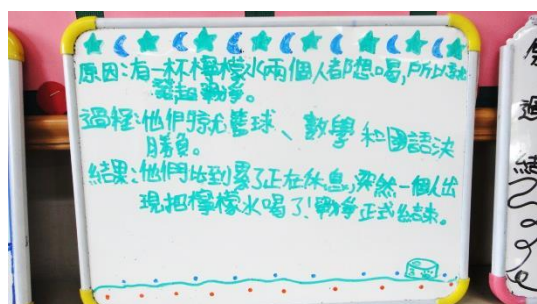 原因:有一杯檸檬水兩個人都想喝,所以就
發起戰爭。
過程:他們就籃球、數學和國語決
勝負。
結果:他們比到累了正在休息,突然一個人出
現把檸檬水喝了!戰爭正式結束。
過
結